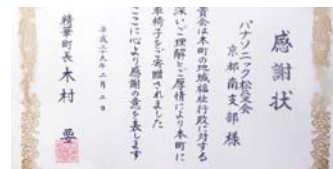 感謝状
パナソニック松愛会
京都南支部 様
貴会は本町の地域福祉行政に対する
深いご理解とご厚情により本町に
車椅子をご寄贈されました
ここに心より感謝の意を表します
平成二十九年二月二日
精華町長 木村 要